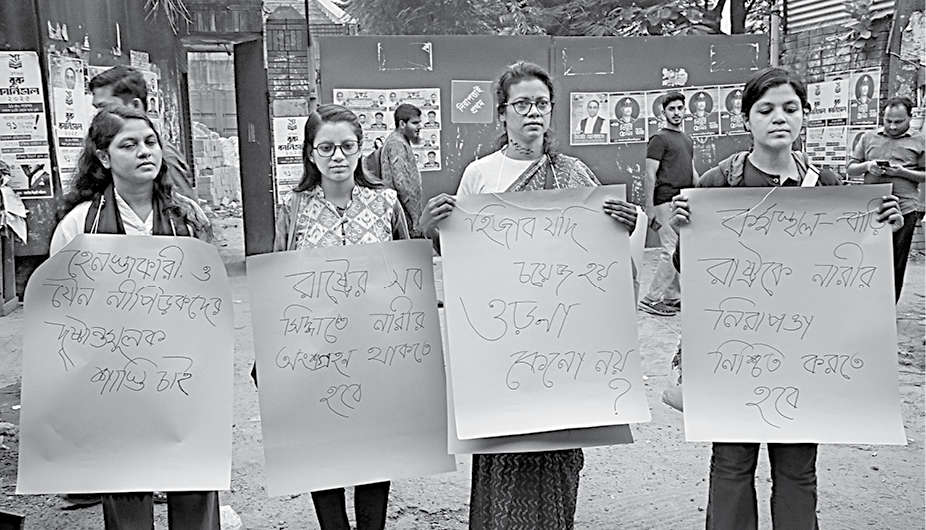 হেনস্তাকারী ও
যৌন নীপিড়কদের
দৃষ্টান্তমূলক
শাস্তি চাই
রাষ্ট্রের সব
সিদ্ধান্তে নারীর
অংশগ্রহন থাকতে
হবে
হিজাব যদি
চয়েজ হয়
ওড়না
কেনো নয়
?
কর্মস্থল-বাড়ি
রাষ্ট্রকে নারীর
নিরাপত্তা
নিশ্চিত করতে
হবে